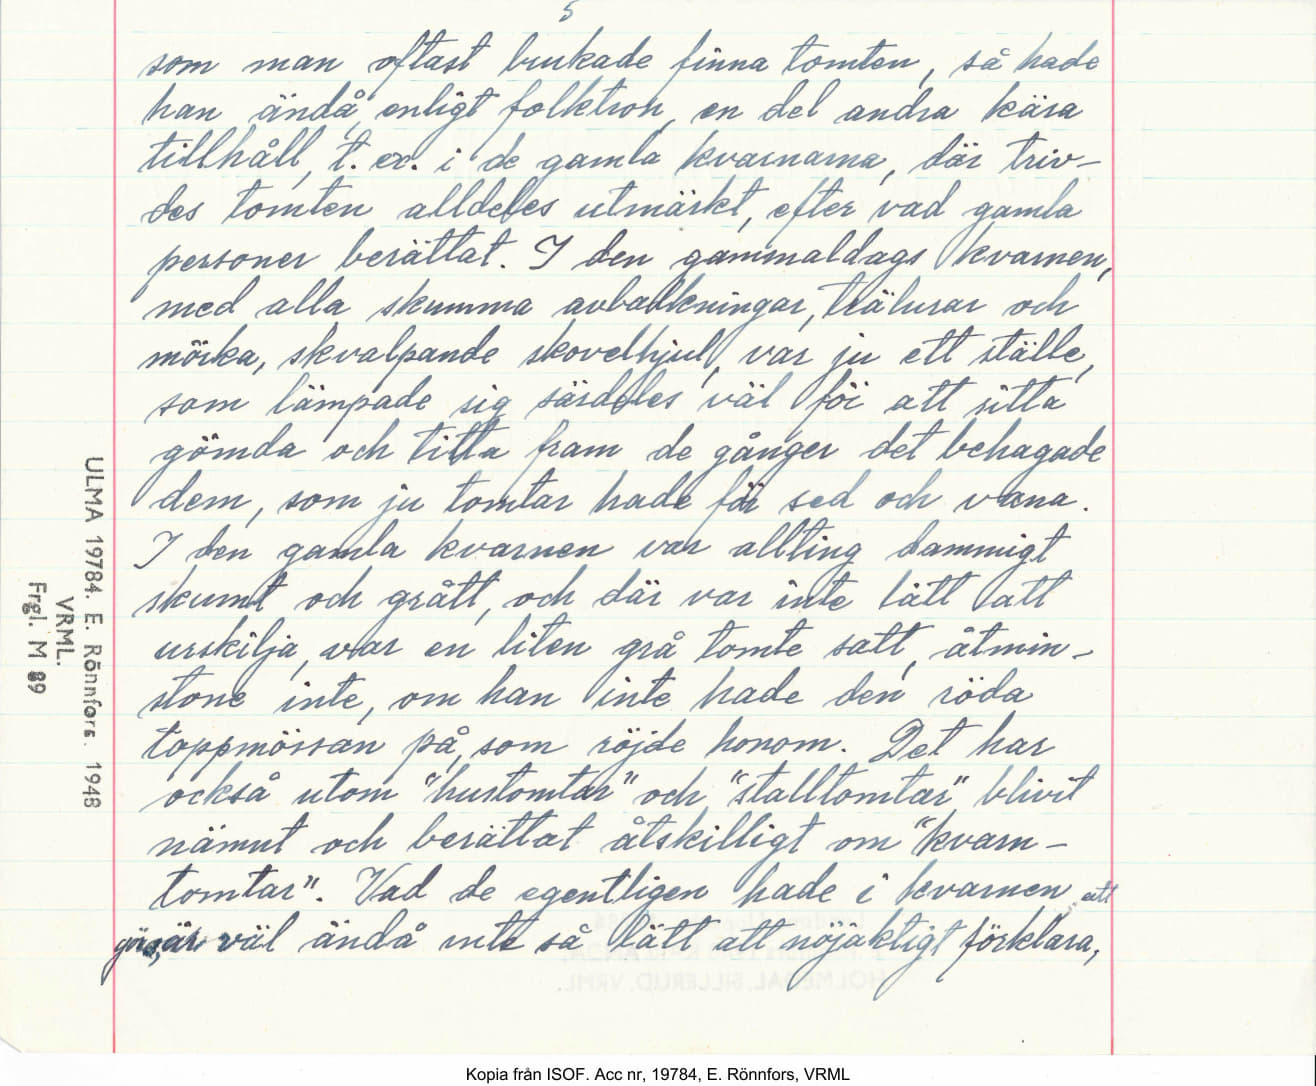 5
som man oftast brukade finna tomten, så hade
han ändå, enligt folktron, en del andra kära
tillhåll, t. ex. i de gamla kvarnarna, där triv-
des tomten alldeles utmärkt, efter vad gamla
personer berättat. I den gammaldags kvarnen,
med alla skumma avbalkningar, trälurar och
mörka, skvalpande skovelhjul, var ju ett ställe,
som lämpade sig särdeles väl för att sitta
gömda och titta fram de gånger det behagade
dem, som ju tomtar hade för sed och vana.
I den gamla kvarnen var allting dammigt
skumt och grått, och där var inte lätt att
urskilja, var en liten grå tomte satt, åtmin-
stone inte, om han inte hade den röda
toppmössan på, som röjde honom. Det har
också utom "hustomtar" och "stalltomtar" blivit
nämnt och berättat åtskilligt om "kvarn-
tomtar". Vad de egentligen hade i kvarnen att
göra, är väl ändå inte så lätt att nöjaktigt förklara,
ULMA 19784. E. Rönnfors. 1948
VRML.
Frgl. M 89
Kopia från ISOF. Acc nr, 19784, E. Rönnfors, VRML